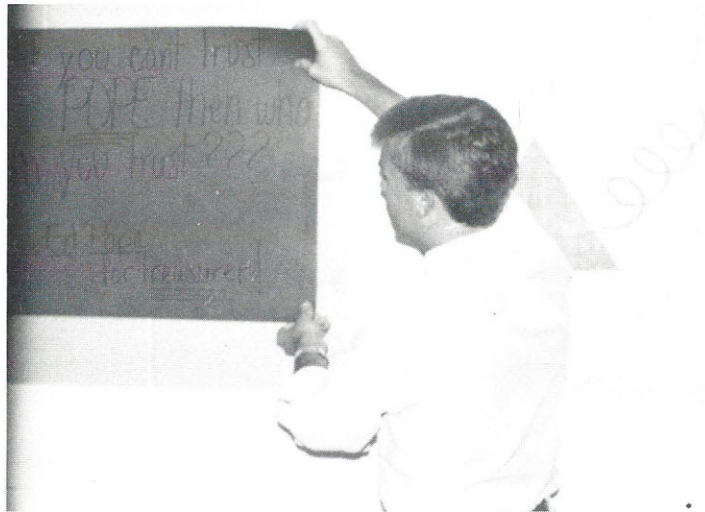 you can't trust
POPE then who
you trust ???
Ed Pope
for treasurer!